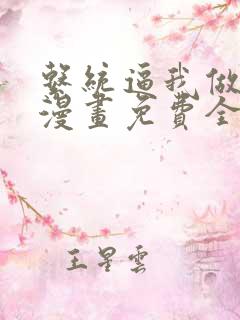 繫統逼我做
漫畫免費全
王星雲